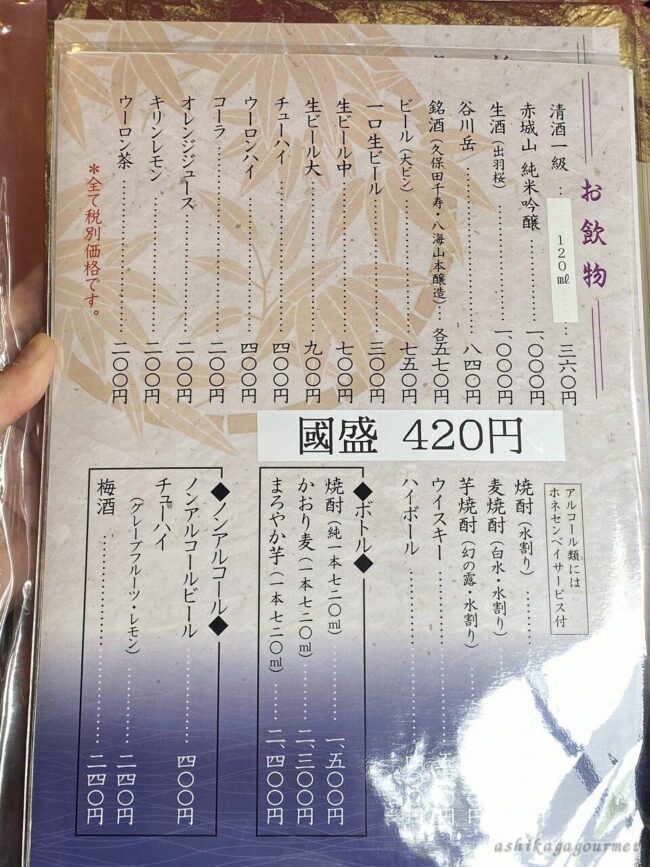 お飲物
清酒一級 … 120㎖ … 三六〇円
赤城山 純米吟醸 … 一、〇〇〇円
生酒（出羽桜） … 一、〇〇〇円
谷川岳 … 八四〇円
銘酒（久保田千寿・八海山本醸造） … 各五七〇円
ビール（大ビン） … 七五〇円
一口生ビール … 三〇〇円
生ビール中 … 七〇〇円
生ビール大 … 九〇〇円
チューハイ … 四〇〇円
ウーロンハイ … 四〇〇円
コーラ … 二〇〇円
オレンジジュース … 二〇〇円
キリンレモン … 二〇〇円
ウーロン茶 … 二〇〇円
＊全て税別価格です。
國盛 420円
アルコール類には
ホネセンベイサービス付
焼酎（水割り）
麦焼酎（白水・水割り）
芋焼酎（幻の露・水割り）
ウイスキー
ハイボール
◆ボトル◆
焼酎（純一本七二〇㎖） … 一、五〇〇円
かおり麦（一本七二〇㎖） … 二、三〇〇円
まろやか芋（一本七二〇㎖） … 二、四〇〇円
◆ノンアルコール◆
ノンアルコールビール … 四〇〇円
チューハイ
（グレープフルーツ・レモン） … 二四〇円
梅酒 … 二四〇円
ashikagagourmet